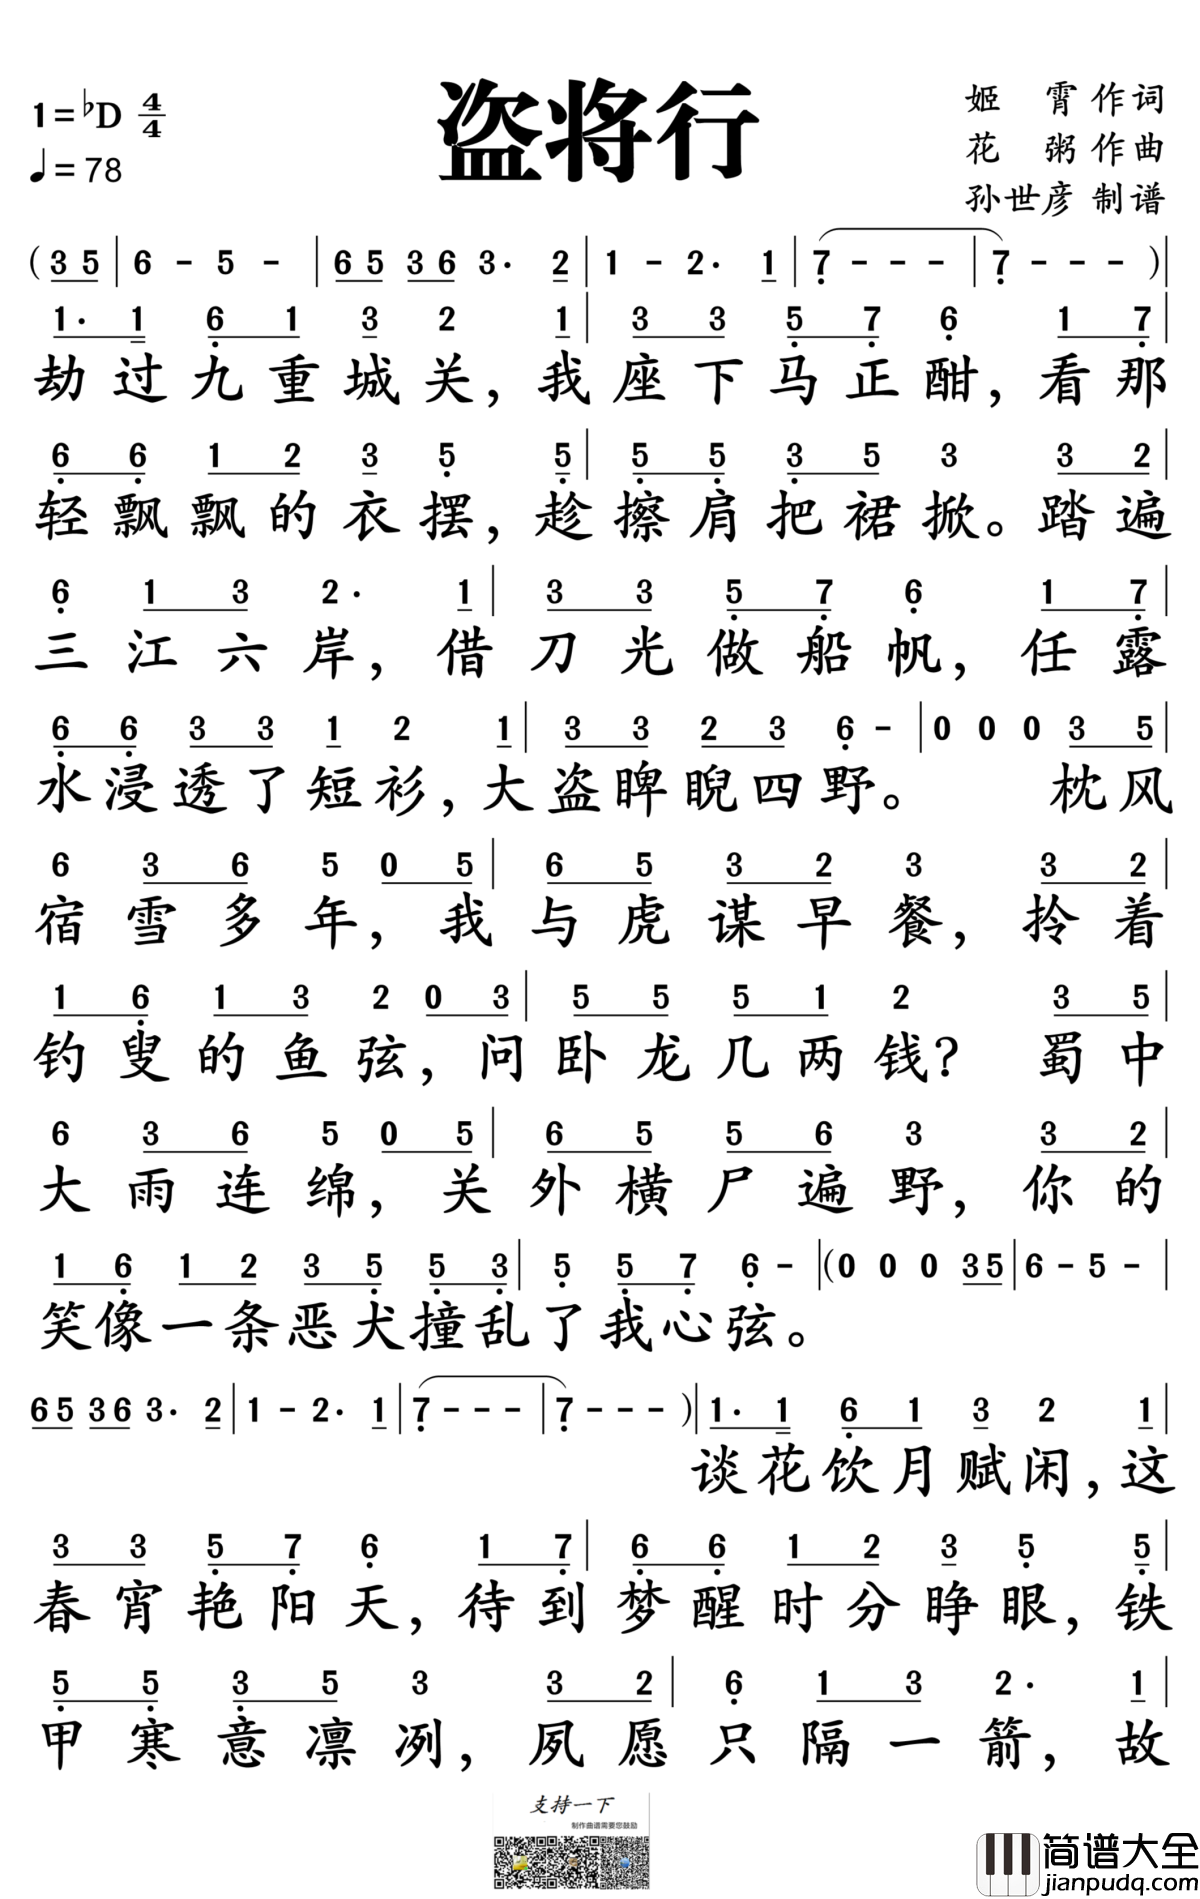 盗将行
1=♭D 4/4
♩=78
姬 霄 作词
花 粥 作曲
孙世彦 制谱
(3 5 | 6 - 5 - | 6 5 3 6 3· 2 | 1 - 2· 1 | 7 - - - | 7 - - - )|
1· 1 6 1 3 2 1 | 3 3 5 7 6 1 7 |
劫过九重城关，我座下马正酣，看那
6 6 1 2 3 5 5 | 5 5 3 5 3 3 2 |
轻飘飘的衣摆，趁擦肩把裙掀。踏遍
6 1 3 2· 1 | 3 3 5 7 6 1 7 |
三江六岸，借刀光做船帆，任露
6 6 3 3 1 2 1 | 3 3 2 3 6 - | 0 0 0 3 5 |
水浸透了短衫，大盗睥睨四野。 枕风
6 3 6 5 0 5 | 6 5 3 2 3 3 2 |
宿雪多年，我与虎谋早餐，拎着
1 6 1 3 2 0 3 | 5 5 5 1 2 3 5 |
钓叟的鱼弦，问卧龙几两钱？ 蜀中
6 3 6 5 0 5 | 6 5 5 6 3 3 2 |
大雨连绵，关外横尸遍野，你的
1 6 1 2 3 5 5 3 | 5 5 7 6 - |(0 0 0 3 5 | 6 - 5 - |
笑像一条恶犬撞乱了我心弦。
6 5 3 6 3· 2 | 1 - 2· 1 | 7 - - - | 7 - - - )| 1· 1 6 1 3 2 1 |
谈花饮月赋闲，这
3 3 5 7 6 1 7 | 6 6 1 2 3 5 5 |
春宵艳阳天，待到梦醒时分睁眼，铁
5 5 3 5 3 3 2 | 6 1 3 2· 1 |
甲寒意凛冽，夙愿只隔一箭，故
支持一下
制作曲谱需要您鼓励
简谱大全
jianpudq.com